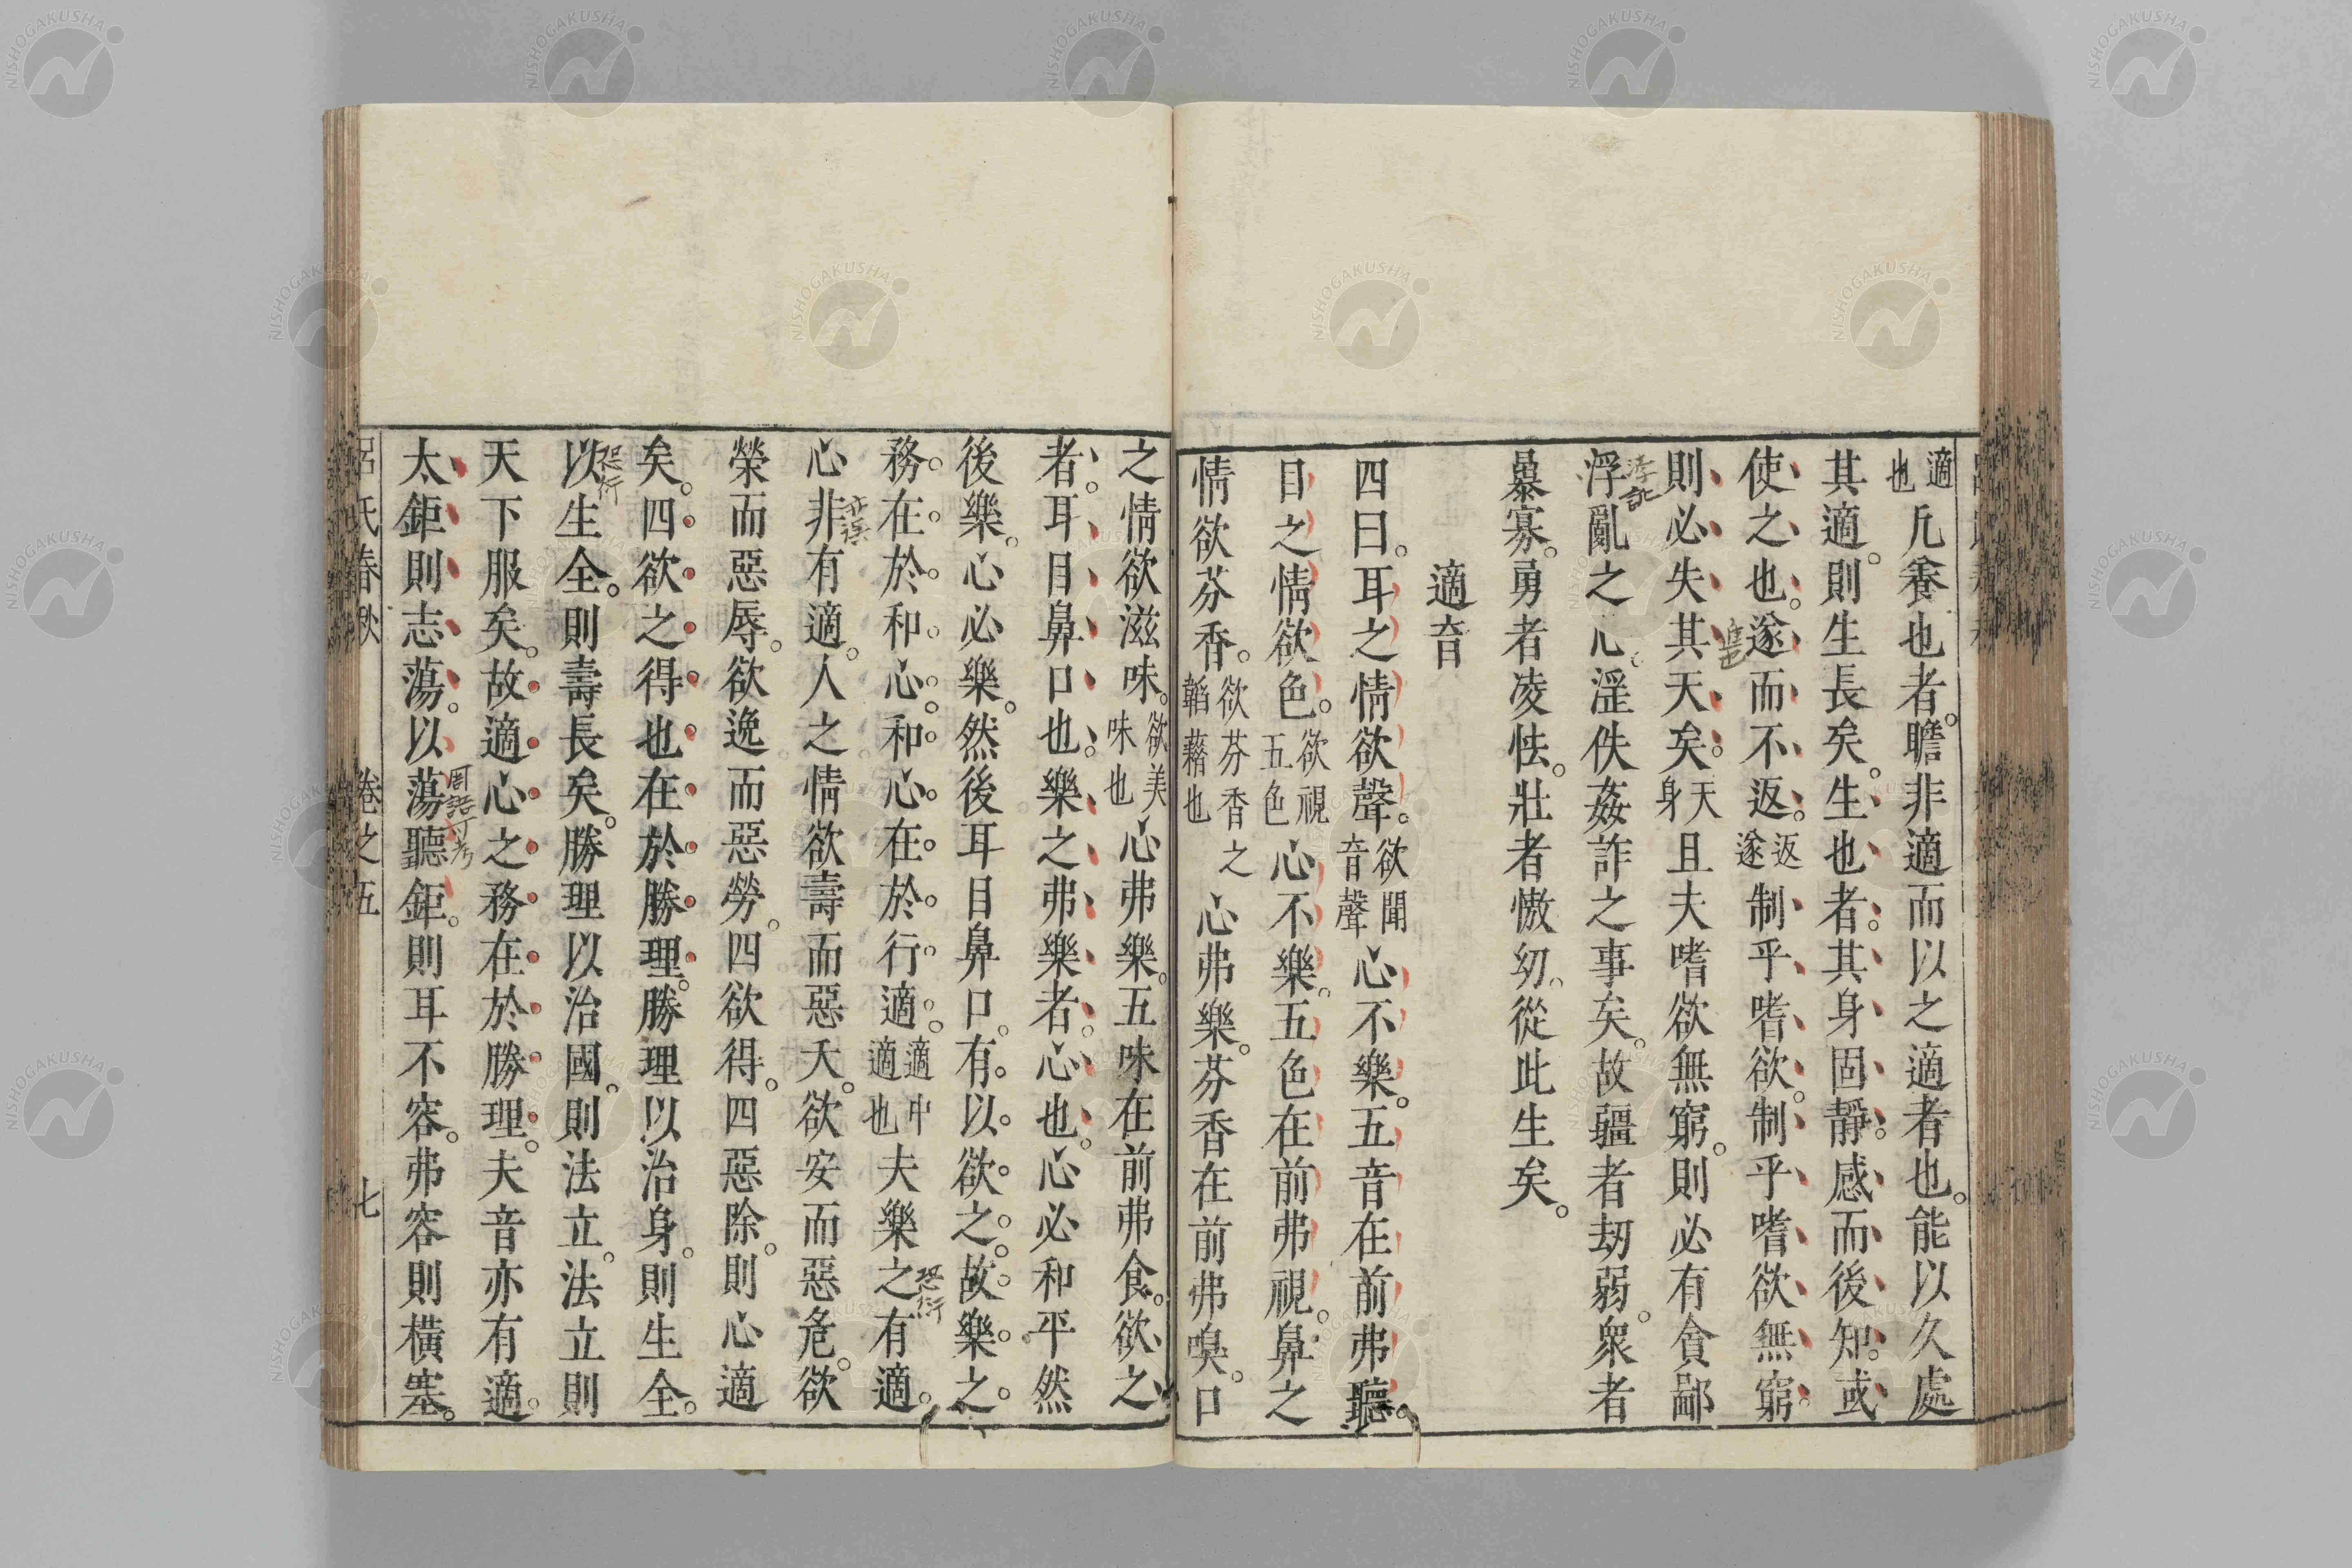 適也凡養也者。瞻非適而以之適者也。能以久處
其適。則生長矣。生也者。其身固靜。感而後知。或
使之也。遂而不返。返遂制乎嗜欲。制乎嗜欲無窮。
則必失其天矣。天身且夫嗜欲無窮。則必有貪鄙
浮亂之心。淫佚姦詐之事矣。故彊者劫弱。衆者
暴寡。勇者凌怯。壯者慠幼。從此生矣。
適音
四曰。耳之情欲聲。欲聞音聲心不樂。五音在前弗聽。
目之情欲色。欲視五色心不樂。五色在前弗視。鼻之
情欲芬香。欲芬香之韜藉也心弗樂。芬香在前弗嗅。口
之情欲滋味。欲美味也心弗樂。五味在前弗食。欲之
者。耳目鼻口也。樂之弗樂者。心也。心必和平然
後樂。心必樂。然後耳目鼻口。有以欲之。故樂之。
務在於和心。和心。在於行適。適中適也夫樂之有適。
恐衍
心非有適。人之情欲壽而惡夭。欲安而惡危。欲
榮而惡辱。欲逸而惡勞。四欲得。四惡除。則心適
矣。四欲之得也。在於勝理。勝理以治身。則生全。
以生全。則壽長矣。勝理以治國。則法立。法立則
恐衍
天下服矣。故適心之務在於勝理。夫音亦有適。
太鉅則志蕩。以蕩聽鉅。則耳不容。弗容則橫塞。
周語可考
呂氏春秋 卷之五 七
NISHOGAKUSHA